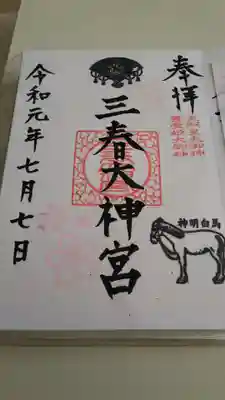 奉拝
三春大神宮
令和元年七月七日
神明白馬